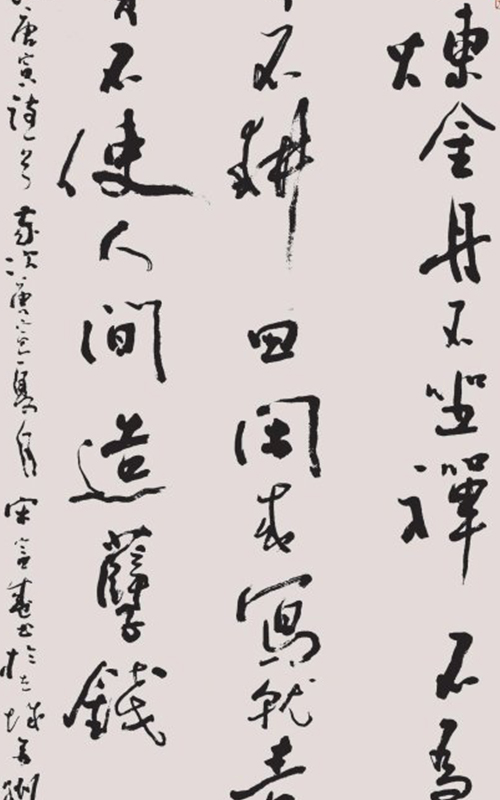 煉金丹不坐禪 不為
不耕田 閑來寫就青
不使人間造孽錢
唐寅詩一首 歲次庚寅夏月 宋